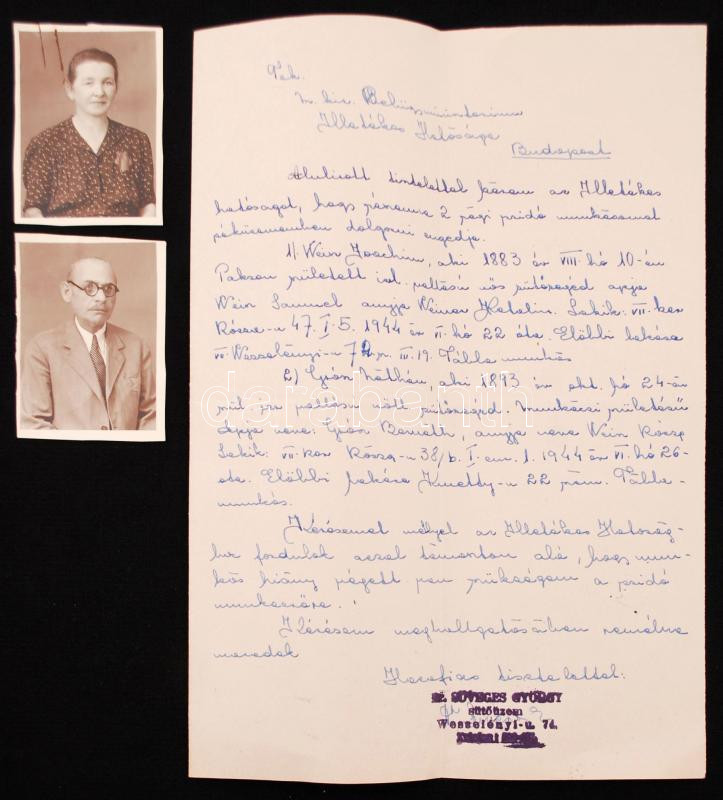 Tek.
m. kir. Belügyminisztérium
Illetékes Hatósága
Budapest
Alulirott tisztelettel kérem az Illetékes
hatóságot, hogy részemre 2 régi zsidó munkásomat
péküzememben dolgozni engedje.
1) Wein Joachim, aki 1883 év VIII. hó 10-én
Pakson született izr. vallású nős sütősegéd apja
Wein Samuel anyja Weiner Katalin. Lakik: VII. ker
Rózsa-u 47. I. 5. 1944 év VI. hó 22 óta. Előbbi lakása
VII. Wesselényi-u 72 sz. III. 19. Tábla munkás
2) Grósz Náthán, aki 1893 év okt. hó 24-én
szül. izr. vallású nőtt sütősegéd. Munkácsi születésű
Apja neve: Grósz Bernáth, anyja neve Wein Rózsa
Lakik: VII. ker Rózsa-u 38/b. I. em. 1. 1944 év VI. hó 26-
óta. Előbbi lakása Kmetty-u 22 szám. Tábla-
munkás.
Kérésemet mélyet az Illetékes Hatóság-
hoz fordulok azzal támasztom alá, hogy mun-
kás hiány végett van szükségem a zsidó
munkaerőre.
Kérésem meghallgatásában remélve
maradok
Hazafias tisztelettel:
SÜVEGES GYÖRGY
sütőüzem
Wesselényi-u. 74.
darabanth